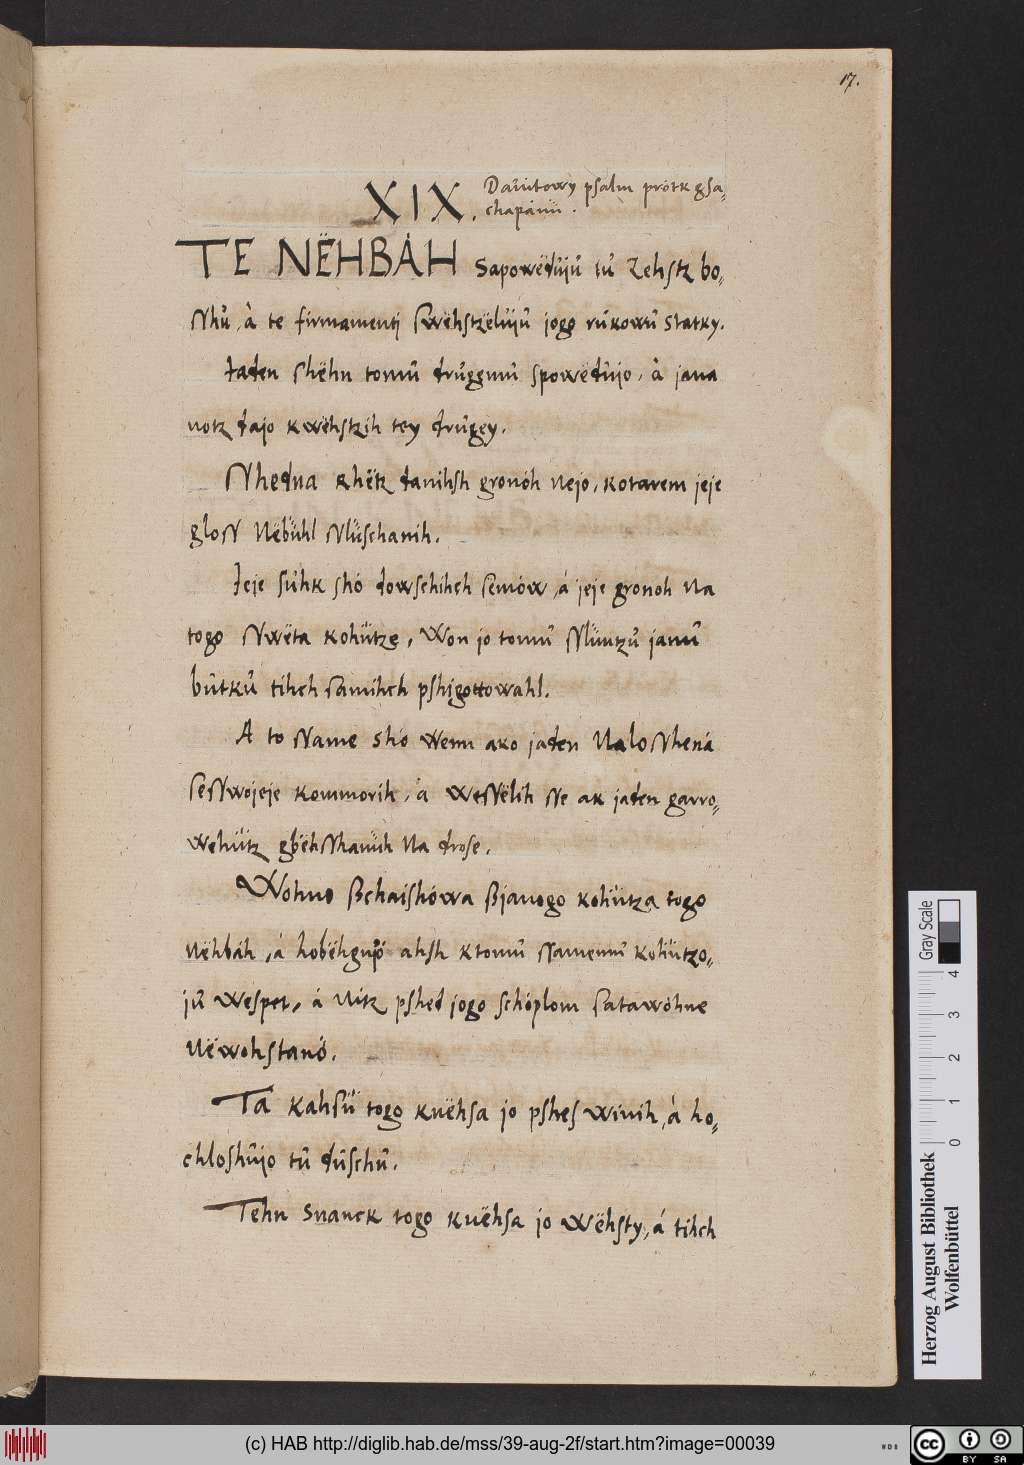 17.
XIX. Dawitowy psalm prótk gsa-
chapánü.
TE NËHBÁH Sapowëdůjů tů Zehstz bo-
Nhů, à te firmamentj swëhstzëlůjů jogo růkowů statky.
Jaden shëhn tomů drůggmů spowëdůjo, à jana
notz dajo kwëhstzih tey drůgey.
Nhedna rhëtz danihsh gronóh nejo, kotarem jeje
gloN nëbůhl Nlüschanih.
Jeje sůhk shó dowschihch semów, á jeje gronoh na
togo Nwëta kohütze, Won jo tomů Nlüntzů janů
bůtků tihch samihch pshigottowahl.
A to Name shó Wenn ako jaden NaloNhená
seNwojeje kommorih, á weNëlih Ne ak jaden garro-
wehütz gbëhNhanüh na drose.
Wohno ßchaishówa ßjanogo kohütza togo
nëhbáh, á hobëhgnjo ahsh ktomů Namemů kohützo-
jů wespet, á nitz pshed jogo schóplom satawóhne
nëwohstanó.
Ta kahsů togo knëhsa jo pshes winih, à ho-
chloshůjo tů důschů.
Tehn snanck togo knëhsa jo wëhsty, á tihch
Gray Scale
0 1 2 3 4
Herzog August Bibliothek
Wolfenbüttel
(c) HAB http://diglib.hab.de/mss/39-aug-2f/start.htm?image=00039
cc BY SA